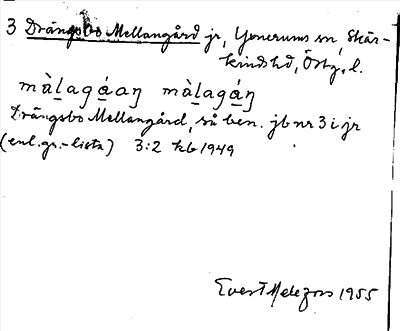 3 Drängsbo Mellangård jr, Yxnerums sn, Skär-
kinds hd, Östg. l.
màlagáaŋ màlagáŋ
Drängsbo Mellangård, så ben. jb nr 3 i jr
(enl. gr.-lista) 3:2 kb 1949
Evert Melefors 1955